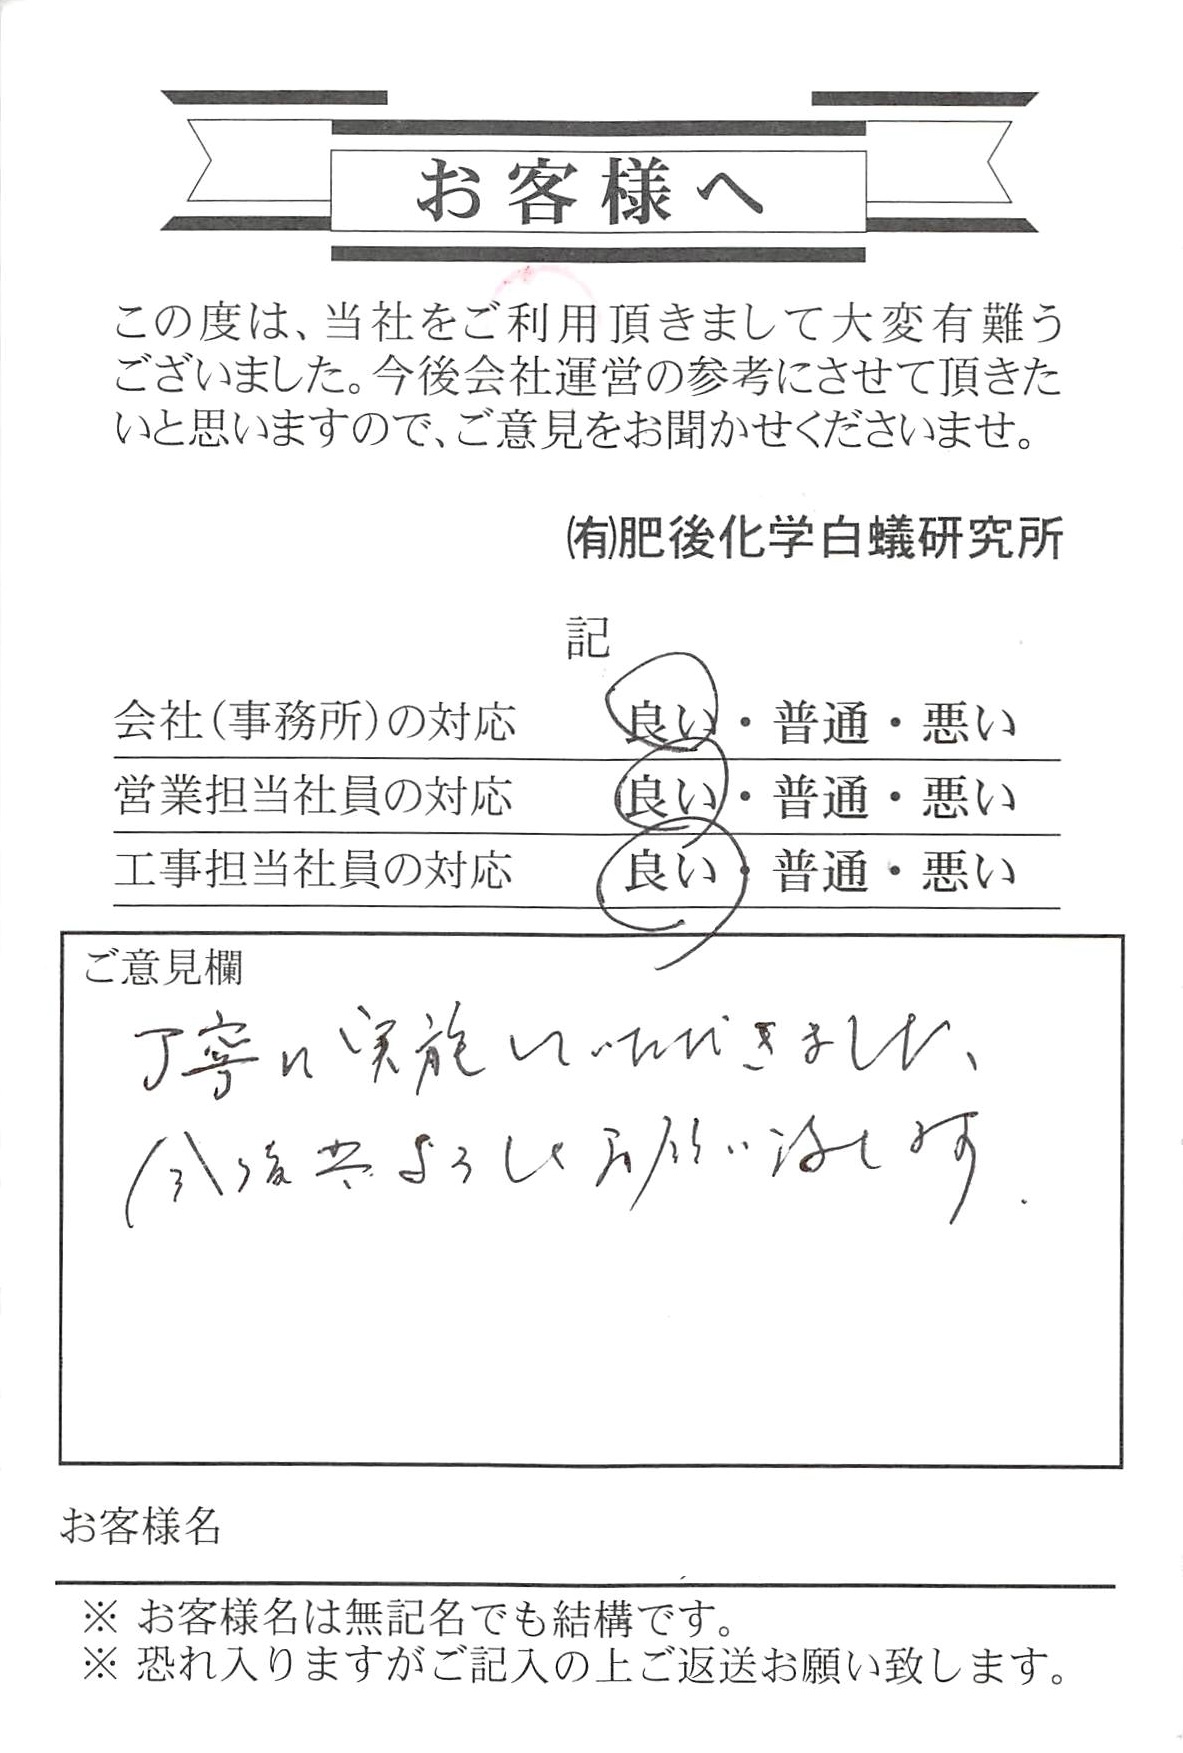 お客様へ
この度は、当社をご利用頂きまして大変有難う
ございました。今後会社運営の参考にさせて頂きた
いと思いますので、ご意見をお聞かせくださいませ。
㈲肥後化学白蟻研究所
記
会社(事務所)の対応 良い・普通・悪い
営業担当社員の対応 良い・普通・悪い
工事担当社員の対応 良い・普通・悪い
ご意見欄
丁寧に実施していただきました、
今後共よろしくお願い致します.
お客様名
※ お客様名は無記名でも結構です。
※ 恐れ入りますがご記入の上ご返送お願い致します。